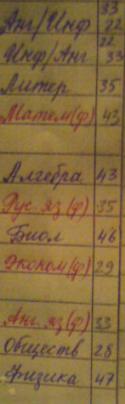 33
Анг/Инф 22
22
Инф/Анг 33
Литер 35
Матем(ф) 43
Алгебра 43
Рус. яз (ф) 35
Биол 46
Эконом(ф) 29
Анг. яз (ф) 33
Обществ 28
Физика 47